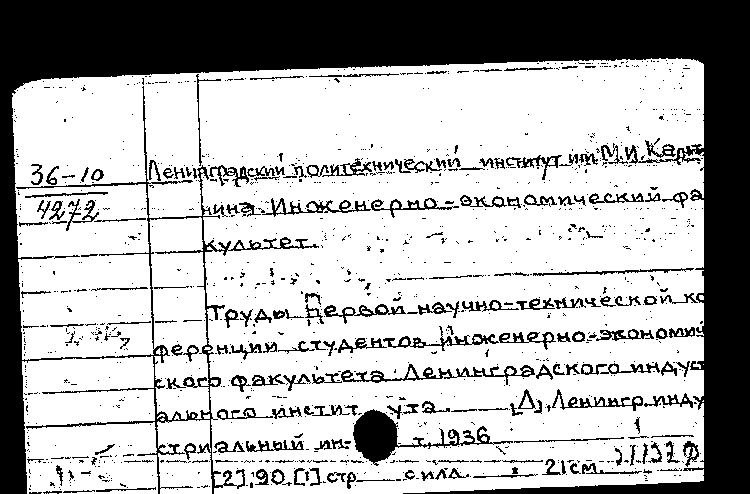 36-10
4272
Ленинградский политехнический институт им. М.И. Кали
нина. Инженерно-экономический фа
культет.
Труды Первой научно-технической ко
ференции студентов Инженерно-экономич
ского факультета Ленинградского индуст
ального инстит ута. [Л], Ленингр. инду
стриальный ин- т, 1936
[2], 90, [1] стр с илл. 21 см.